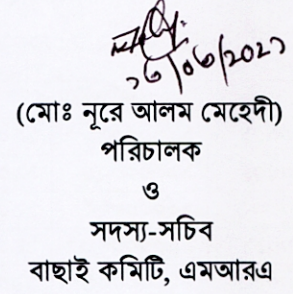 ১৬/০৬/২০২১
(মোঃ নূরে আলম মেহেদী)
পরিচালক
ও
সদস্য-সচিব
বাছাই কমিটি, এমআরএ